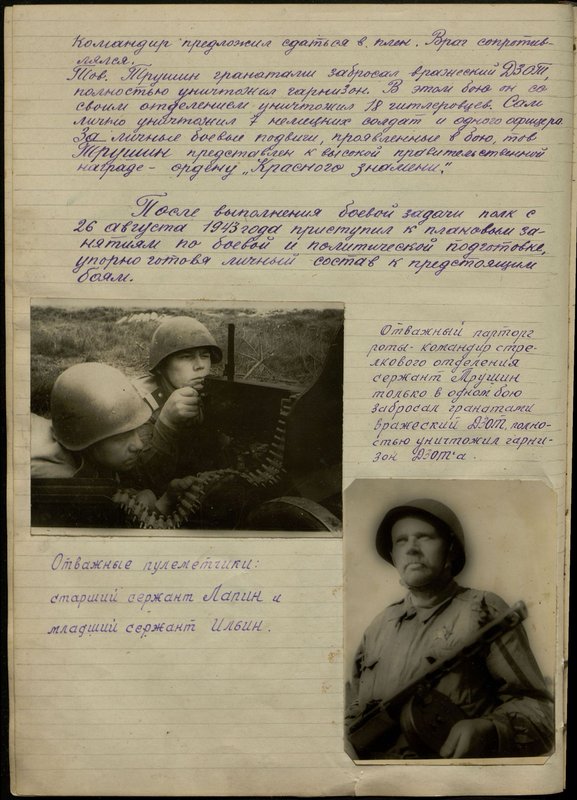 Командир предложил сдаться в плен. Враг сопротив-
лялся.
Тов. Трушин гранатами забросал вражеский ДЗОТ,
полностью уничтожил гарнизон. В этом бою он со
своим отделением уничтожил 18 гитлеровцев. Сам
лично уничтожил 7 немецких солдат и одного офицера
За личные боевые подвиги, проявленные в бою, тов
Трушин представлен к высокой правительственной
награде - ордену „Красного знамени".
После выполнения боевой задачи полк с
26 августа 1943 года приступил к плановым за-
нятиям по боевой и политической подготовке,
упорно готовя личный состав к предстоящим
боям.
Отважный парторг
роты - командир стре-
лкового отделения
сержант Трушин
только в одном бою
забросал гранатами
вражеский ДЗОТ, полно-
стью уничтожил гарни-
зон ДЗОТ'а.
Отважные пулеметчики:
старший сержант Лапин и
младший сержант Ильин.